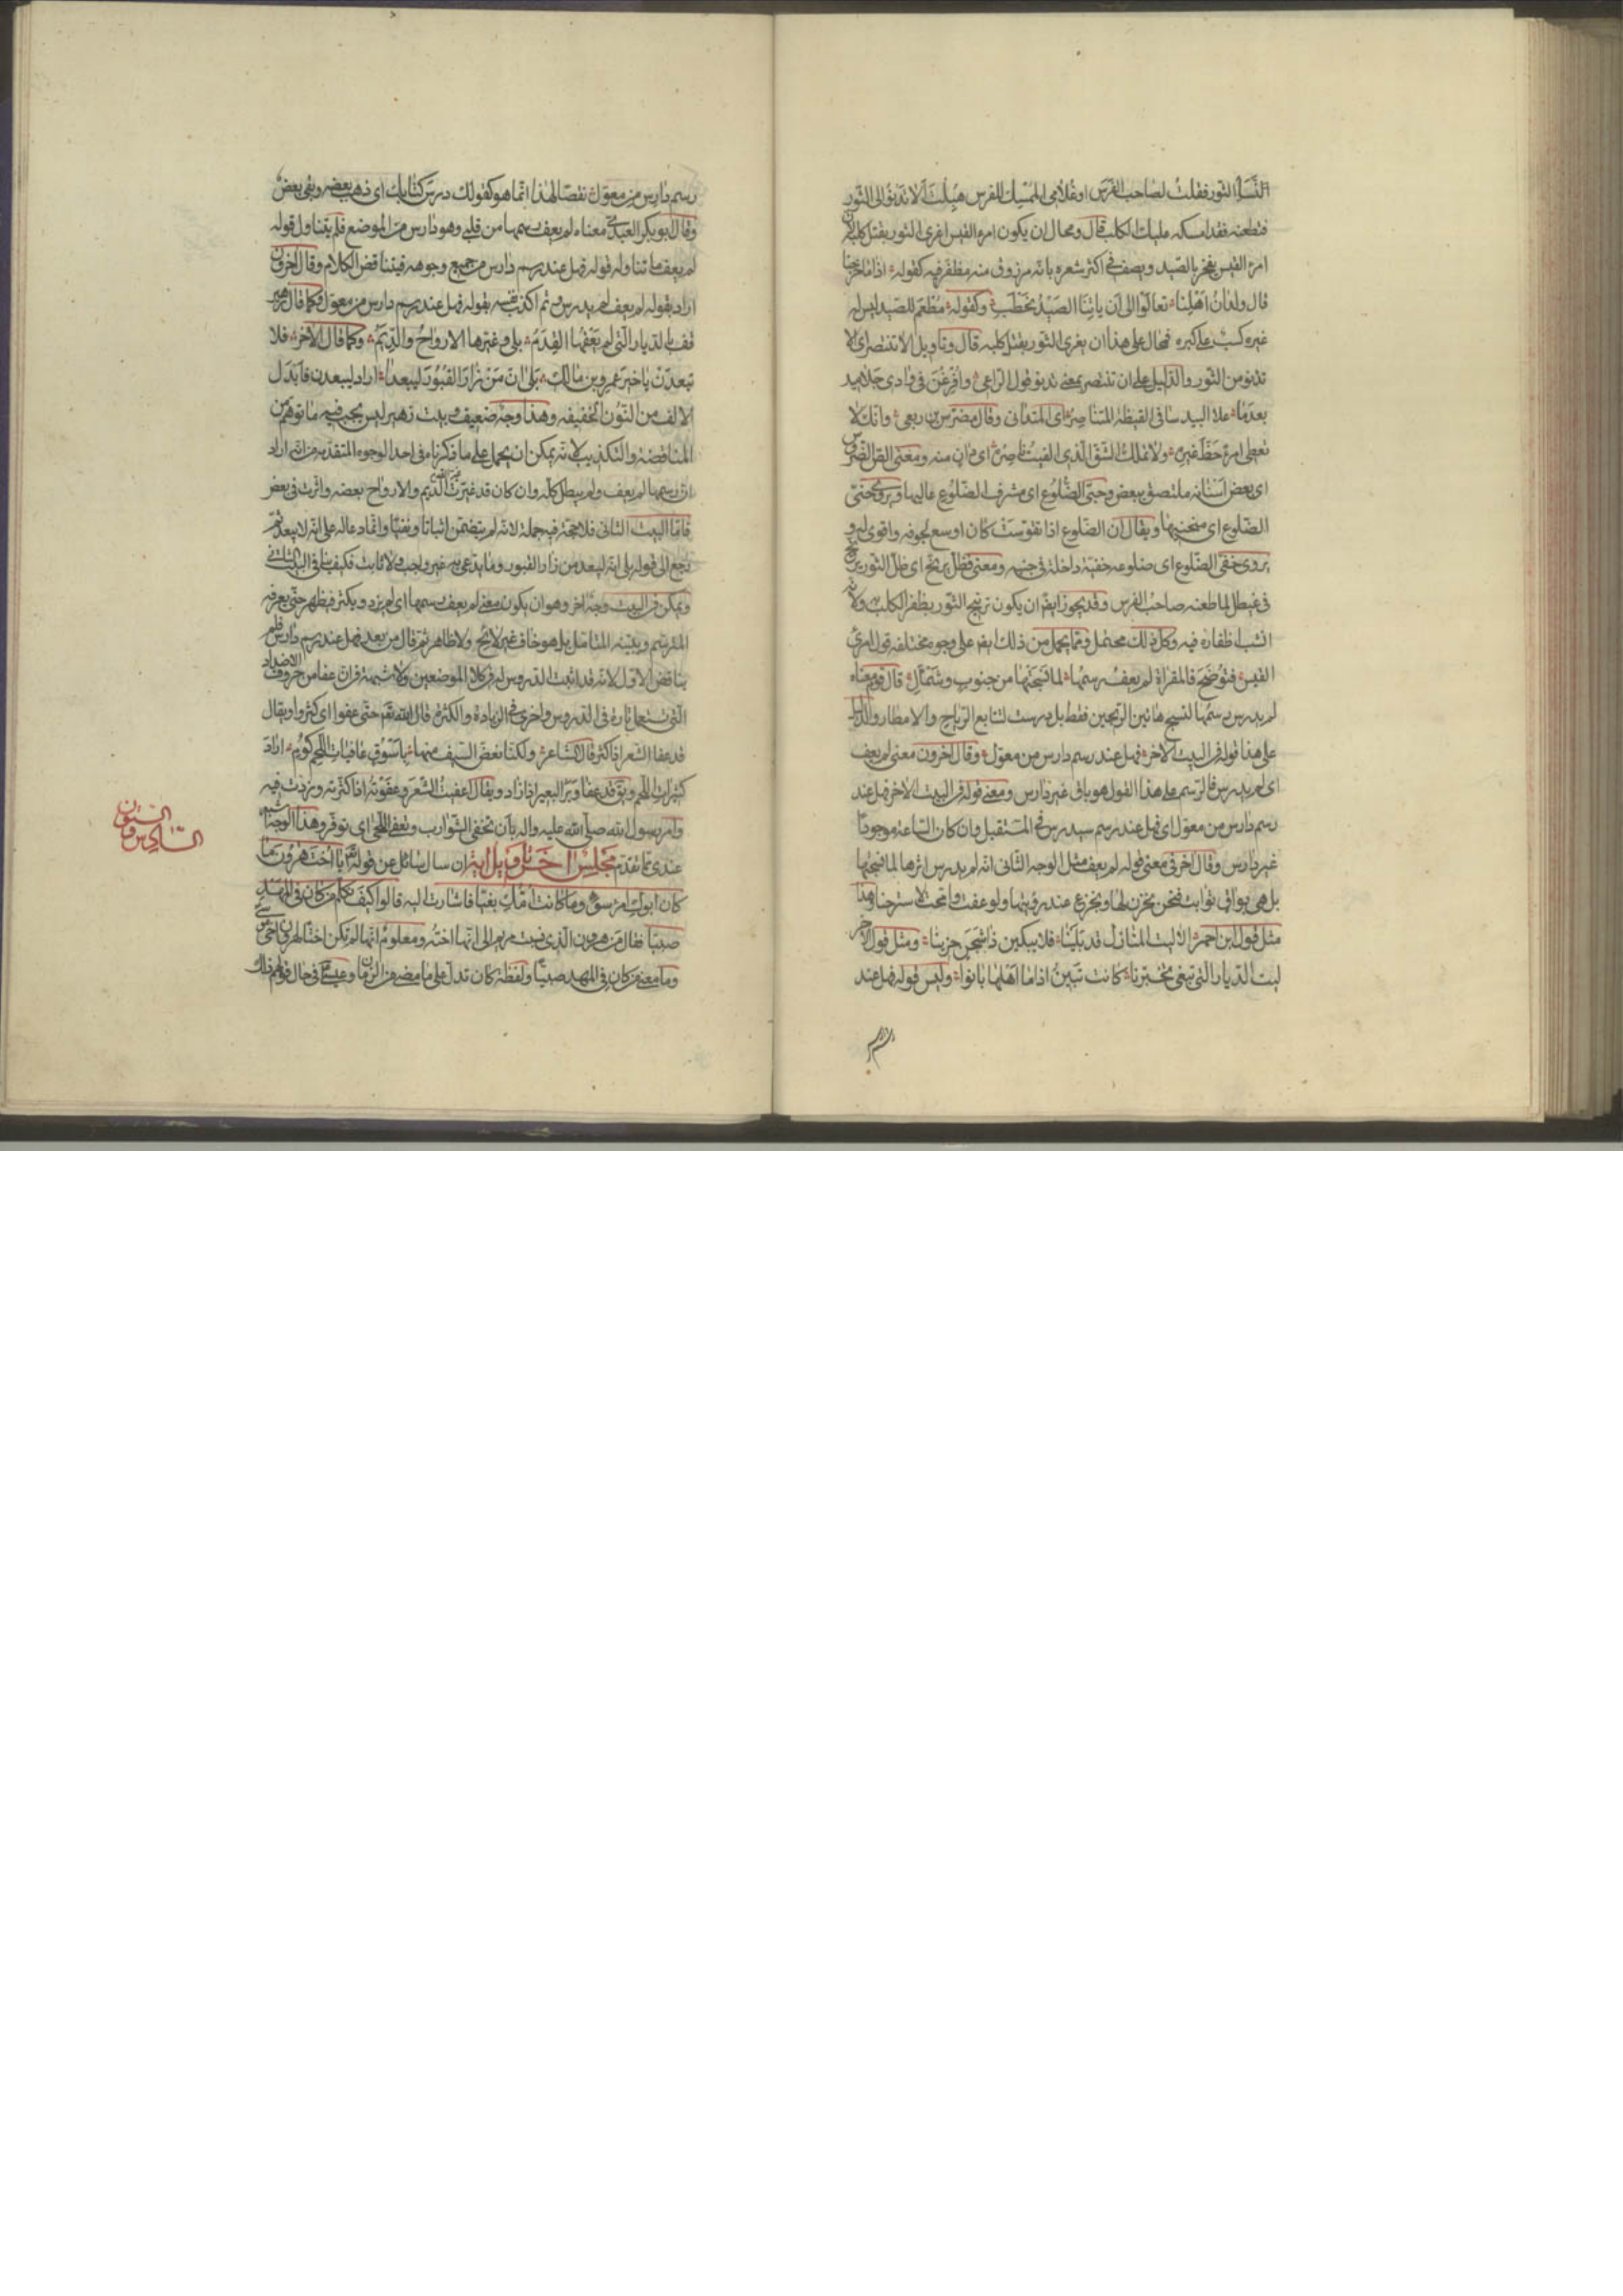 النَّسَا الثور فقلتُ لصاحب الفَرَس او غُلامى الممسك للفرس هُبِلتَ اَلا تدنو الى الثور
فتطعنه فقد امسكه عليك الكلب قال ومحال ان يكون امرء القيس اغرى الثور بقتل كلبه لان
امرء القيس يفخر بالصيد ويصف فى اكثر شعره بانه مرزوق منه مظفر فيه كقوله اذا ما خرجنا
قال ولدان اهلنا تعالَوا الى ان ياتنا الصيدُ نحطبِ وكقوله مُطعَم للصيد ليس له
غيره كسبٌ على كبره فمحال على هذا ان يغرى الثور بقتل كلبه قال وتاويل الا تنتصر اى الا
تدنو من الثور والدليل على ان تنتصر بمعنى تدنو قول الراعى وافرغن فى وادى جلاميد
بعدما علا البيد سافى القيظة المتناصِرُ اى المتدانى وقال مضرس بن ربعى وانك لا
تعطى امرءً حظَّ غيره ولا تملك الشقّ الذى الغيثُ ناصِرُه اى دانٍ منه ومعنى الصّ الضروس
اى بعض اسنانه ملتصق ببعض وحبىّ الضلوع اى مشرف الضلوع عاليها ويروى حنىّ
الضلوع اى منحنيها ويقال ان الضلوع اذا تقوّست كان اوسع لجوفه واقوى له و
يروى خفىّ الضلوع اى ضلوعه خفيّة داخلة فى جنبه ومعنى فظلّ يرنّح اى ظلّ الثور يرنح
فى غيطل لما طعنه صاحب الفرس وقد يجوز ايضا ان يكون ترنيح الثور بظفر الكلب به ولانه
انشب اظفاره فيه وكل ذلك محتمل ومما يحمل من ذلك ايضا على وجوه مختلفة قول امرئ
القيس فتوضح فالمقراة لم يعفُ رسمُها لما نسجتها من جنوب وشَمأل قال قوم معناه
لم يدرس رسمُها لنسج هاتين الريحين فقط بل درست لتتابع الرياح والامطار والدليل
على هذا قوله فى البيت الاخر فهل عند رسم دارس من معوّل وقال اخرون معنى لم يعف
اى لم يدرس فالرسم على هذا القول هو باق غير دارس ومعنى قوله فى البيت الاخر فهل عند
رسم دارس من معوّل اى فهل عند رسم سيدرس فى المستقبل وان كان الساعة موجودا
غير دارس وقال اخر فى معنى قوله لم يعف مثل الوجه الثانى انه لم يدرس اثرها لما نسجتها
بل هى بواقٍ ثوابت فنحن نحزن لها ونجزع عند رؤيتها ولو عفت وامّحت لاسترحنا وهذا
مثل قول ابن احمر الا ليت المنازل قد بَلَينا فلا يبكين ذا شجَنٍ حزينا ومثل قول الاخر
ليت الديار التى تبقى تخبّرنا كانت تبينُ اذا ما اهلها بانوا وليس قوله فهل عند
رسم دارس من معوّل نقضا لهذا انما هو كقولك درسَ كتابك اى ذهب بعضه وبقى بعض
وقال ابو بكر العبدى معناه لم يعف رسمها من قلبى وهو دارس من الموضع فلم يتناول قوله
لم يعف ما تناوله قوله فهل عند رسم دارس من جميع وجوهه فيتناقض الكلام وقال اخرون
اراد بقوله لم يعف لم يدرس ثم اكذب نفسه بقوله فهل عند رسم دارس من معوّل وكما قال زهير
قف بالديار التى لم يعفُها القِدَمُ بلى وغيّرها الارواحُ والدِيَمُ وكما قال الاخر فلا
تبعدَنْ يا خيرَ عمرو بن مالك بَلىٰ اِنّ مَن زار القبور ليبعدا اراد ليبعدن فابدل
الالف من النون الخفيفة وهذا وجه ضعيف وبيت زهير ليس يجب فيه ما توهم من
المناقضة والتكذيب لانه يمكن ان يحمل على ما ذكرناه فى احد الوجوه المتقدمة من انه اراد
ان رسمها لم يعف ولم يبطل كله وان كان قد غيّرته الديم والارواح بعضه واثرت فى بعض
فامّا البيت الثانى فلا حجة فيه جملة لانه لم يتضمن اثباتا ونفيا وانما دعا له على انه لا يبعد ثم
رجع الى قوله بلى انه ليبعد من زار القبور وما يدعى به غير واجب ولا ثابت فكيف ينافى البيت الثانى
ويمكن فى البيت وجه اخر وهو ان يكون معنى لم يعف رسمها اى لم يزد ويكثر فيظهر حتى يعرفه
المترسم ويتبينه المتامل بل هو خاف غير لايح ولا ظاهر ثم قال من بعد فهل عند رسم دارس فلم
يناقض الاول لانه قد اثبت الدروس له فى كلا الموضعين ولا شبهة فى ان عفا من حروف الاضداد
التى تستعمل تارة فى الدروس واخرى فى الزيادة والكثرة قال الله تعم حتى عفوا اى كثروا ويقال
قد عفا الشعر اذا كثر قال الشاعر ولكنا نعضّ السيف منها باسْوُق عافيات اللحم كُوم اراد
كثيرات اللحم ويق قد عفا وبر البعير اذا زاد ويقال اعفيت الشعر وعفوته اذا كثرته وزدت فيه
وامر رسول الله صلى الله عليه واله بان تحفى الشوارب وتعفى اللحى اى توفر وهذا الوجه اشبه
عندى مما تقدم مجلس اخر تاويل اية ان سال سائل عن قوله تعم يا اخت هرون ما
كان ابوك امرء سوء وما كانت امّك بغيا فاشارت اليه قالوا كيف نكلم من كان فى المهد
صبيّا فقال من هرون الذى نسبت مريم الى انها اخته ومعلوم انها لم تكن اختا لهرون اخى موسى
وما معنى من كان فى المهد صبيّا ولفظة كان تدل على ما مضى من الزمان وعيسى فى حال قولهم ذلك
السادس و الستون